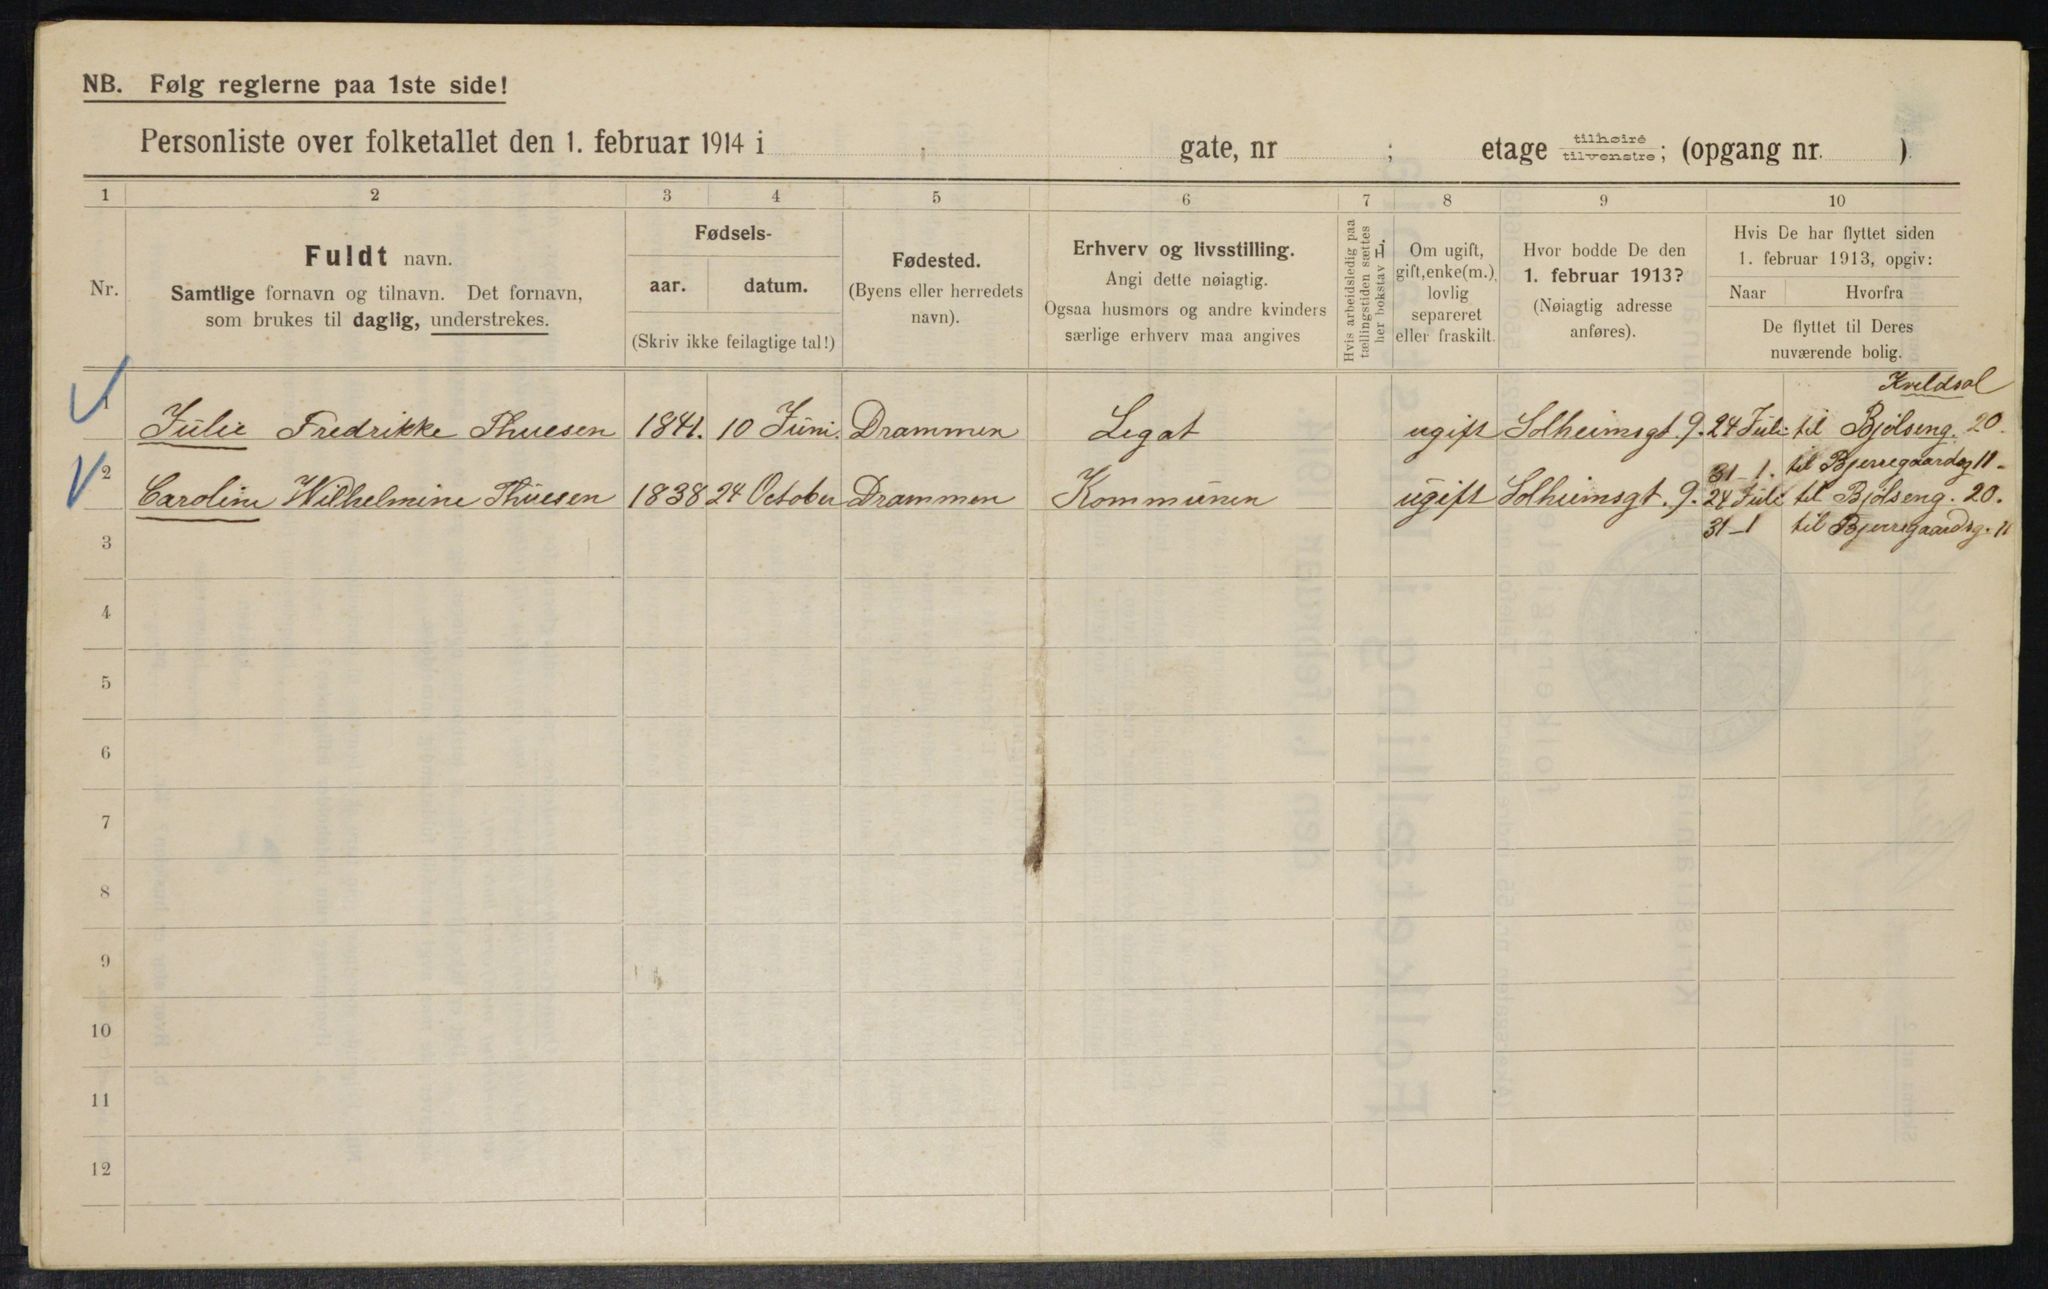 NB. Følg reglerne paa 1ste side!
Personliste over folketallet den 1. februar 1914 i gate, nr ; etage tilhøire tilvenstre; (opgang nr. )
1 2 3 4 5 6 7 8 9 10
Nr.
Fuldt navn.
Samtlige fornavn og tilnavn. Det fornavn,
som brukes til daglig, understrekes.
Fødsels-
aar. datum.
(Skriv ikke feilagtige tal!)
Fødested.
(Byens eller herredets
navn).
Erhverv og livsstilling.
Angi dette nøiagtig.
Ogsaa husmors og andre kvinders
særlige erhverv maa angives
Hvis arbeidsledig paa
tællingstiden sættes
her bokstav L.
Om ugift,
gift, enke(m.),
lovlig
separeret
eller fraskilt.
Hvor bodde De den
1. februar 1913?
(Nøiagtig adresse
anføres).
Hvis De har flyttet siden
1. februar 1913, opgiv:
Naar Hvorfra
De flyttet til Deres
nuværende bolig.
Kveldsol
1 Julie Fredrikke Thuesen 1841. 10 Juni. Drammen Legat ugift Solheimsgt. 9. 24 Juli til Bjølseng. 20.
31-1. til Bjerregaardsg 11-
2 Caroline Wilhelmine Thuesen 1838 24 October Drammen Kommunen ugift Solheimsgt. 9. 24 Juli til Bjølseng. 20.
31-1 til Bjerregaardsg. 11
3
4
5
6
7
8
9
10
11
12